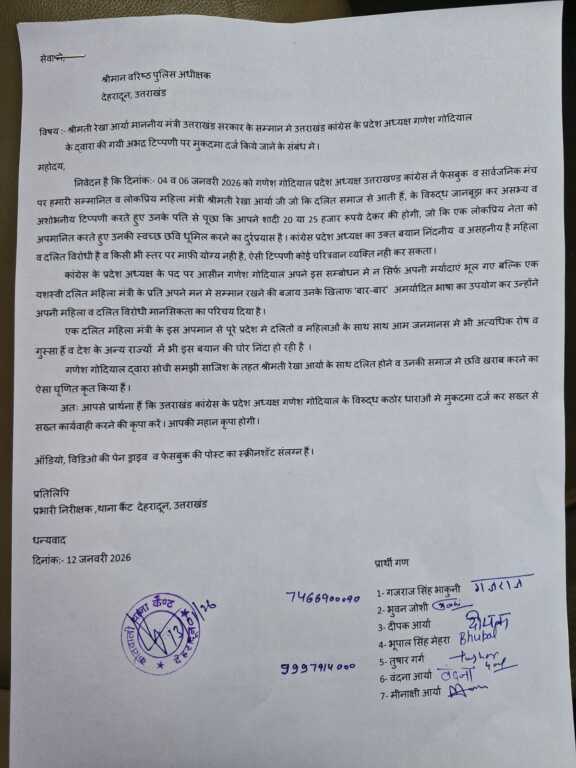 सेवा मे,
श्रीमान वरिष्ठ पुलिस अधीक्षक
देहरादून, उत्तराखंड
विषय :- श्रीमती रेखा आर्या माननीय मंत्री उत्तराखंड सरकार के सम्मान मे उत्तराखंड कांग्रेस के प्रदेश अध्यक्ष गणेश गोदियाल
के द्वारा की गयी अभद्र टिप्पणी पर मुकदमा दर्ज किये जाने के संबंध मे।
महोदय,
निवेदन है कि दिनांक:- 04 व 06 जनवरी 2026 को गणेश गोदियाल प्रदेश अध्यक्ष उत्तराखण्ड कांग्रेस नें फेसबुक व सार्वजनिक मंच
पर हमारी सम्मानित व लोकप्रिय महिला मंत्री श्रीमती रेखा आर्या जी जो कि दलित समाज से आती हैं, के विरुद्ध जानबूझ कर असभ्य व
अशोभनीय टिप्पणी करते हुए उनके पति से पूछा कि आपने शादी 20 या 25 हजार रूपये देकर की होगी, जो कि एक लोकप्रिय नेता को
अपमानित करते हुए उनकी स्वच्छ छवि धूमिल करने का दुरेप्रयास है। कांग्रेस प्रदेश अध्यक्ष का उक्त बयान निंदनीय व असहनीय है महिला
व दलित विरोधी है व किसी भी स्तर पर माफी योग्य नही है, ऐसी टिप्पणी कोई चरित्रवान व्यक्ति नही कर सकता।
कांग्रेस के प्रदेश अध्यक्ष के पद पर आसीन गणेश गोदियाल अपने इस सम्बोधन मे न सिर्फ अपनी मर्यादाएं भूल गए बल्कि एक
यशस्वी दलित महिला मंत्री के प्रति अपने मन मे सम्मान रखने की बजाय उनके खिलाफ 'बार-बार' अमर्यादित भाषा का उपयोग कर उन्होंने
अपनी महिला व दलित विरोधी मानसिकता का परिचय दिया है।
एक दलित महिला मंत्री के इस अपमान से पूरे प्रदेश मे दलितो व महिलाओं के साथ साथ आम जनमानस मे भी अत्यधिक रोष व
गुस्सा हैं व देश के अन्य राज्यों में भी इस बयान की घोर निंदा हो रही है ।
गणेश गोदियाल द्वारा सोची समझी साजिश के तहत श्रीमती रेखा आर्या के साथ दलित होने व उनकी समाज मे छवि खराब करने का
ऐसा घृणित कृत किया हैं।
अतः आपसे प्रार्थना हैं कि उत्तराखंड कांग्रेस के प्रदेश अध्यक्ष गणेश गोदियाल के विरुद्ध कठोर धाराओं मे मुकदमा दर्ज कर सख्त से
सख्त कार्यवाही करने की कृपा करें। आपकी महान कृपा होगी।
ऑडियो, विडिओ की पेन ड्राइव व फेसबुक की पोस्ट का स्क्रीनशॉट संलग्न हैं।
प्रतिलिपि
प्रभारी निरीक्षक ,थाना कैंट देहरादून, उत्तराखंड
धन्यवाद
दिनांक:- 12 जनवरी 2026
प्रार्थी गण
1- गजराज सिंह भाकुनी गजराज
7466900090
2- भुवन जोशी
3- दीपक आर्या दीपक
4- भूपाल सिंह मेहरा Bhupal
5- तुषार गर्ग Tushar
9997914000
6- वंदना आर्या वंदना
7- मीनाक्षी आर्या
कोतवाली थाना कैण्ट
देहरादून